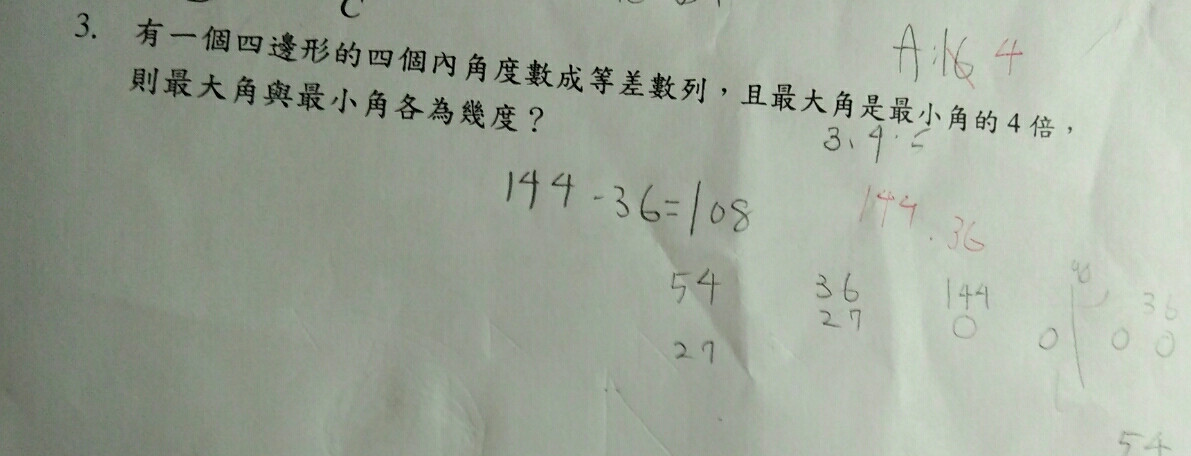 C
3. 有一個四邊形的四個內角度數成等差數列，且最大角是最小角的4倍，
則最大角與最小角各為幾度？
A:16 4
3、4、5
144-36=108
144.36
54 36 144 36
27 0 0 0 0
27
54